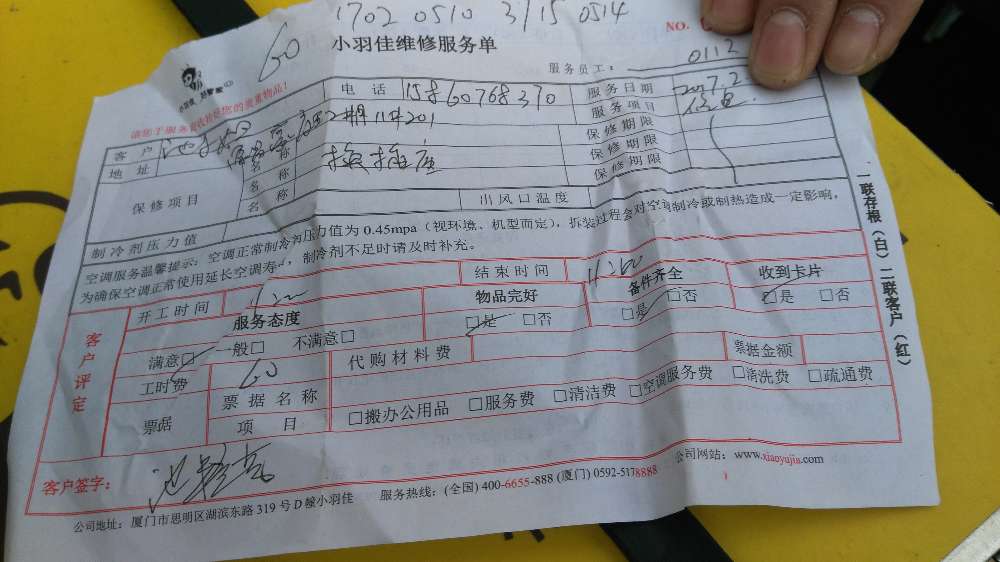 1702 0510 3715 0514
NO.
60
小羽佳维修服务单
服务员工： 0112
请您于服务前收拾您的贵重物品！
客户 电话 服务日期 2017.2
地址 2期11#201 服务项目
保修项目 名称 换插座 保修期限
名称 保修期限
名称 保修期限
制冷剂压力值 出风口温度
空调服务温馨提示：空调正常制冷剂压力值为 0.45mpa（视环境、机型而定），拆装过程会对空调制冷或制热造成一定影响，
为确保空调正常使用延长空调寿命，制冷剂不足时请及时补充。
客户评定
开工时间 结束时间
服务态度 物品完好 备件齐全 收到卡片
满意□ 一般□ 不满意□ □是 □否 □是 □否 □是 □否
工时费 60 代购材料费 票据金额
票据 票据名称
项目 □搬办公用品 □服务费 □清洁费 □空调服务费 □清洗费 □疏通费
客户签字：
公司地址：厦门市思明区湖滨东路 319 号 D 幢小羽佳 服务热线：（全国）400-6655-888（厦门）0592-5178888 公司网站：www.xiaoyujia.com
一联存根（白）二联客户（红）